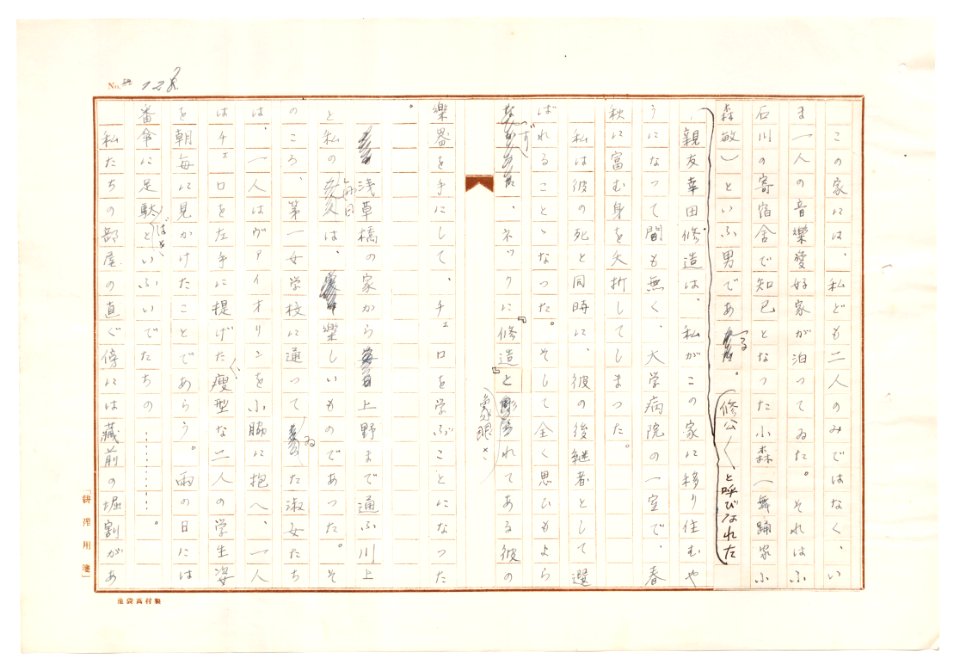 No. 128
この家には、私ども二人のみではなく、い
ま一人の音樂愛好家が泊ってゐた。それはふ
石川の寄宿舎で知己となった小森(舞踊家小
森敏)といふ男である。(修公〱と呼びなれた
親友幸田修造は、私がこの家に移り住むや
うになって間も無く、大学病院の一室で、春
秋に富む身を夭折してしまった。
私は彼の死と同時に、彼の後継者として選
ばれることゝなった。そして全く思ひもよら
ず、ネックに『修造』と れてある彼の
樂器を手にして、チェロを学ぶことになった
。
浅草橋の家から上野まで通ふ川上
と私の毎日は、樂しいものであった。そ
のころ、第一女学校に通ってゐた淑女たち
は、一人はヴァイオリンを小脇に抱へ、一人
はチェロを左手に提げた痩型な二人の学生姿
を朝毎に見かけたことであらう。雨の日には
番傘に足駄ばきといふいでたちの…………。
私たちの部屋の直ぐ傍には藏前の堀割があ